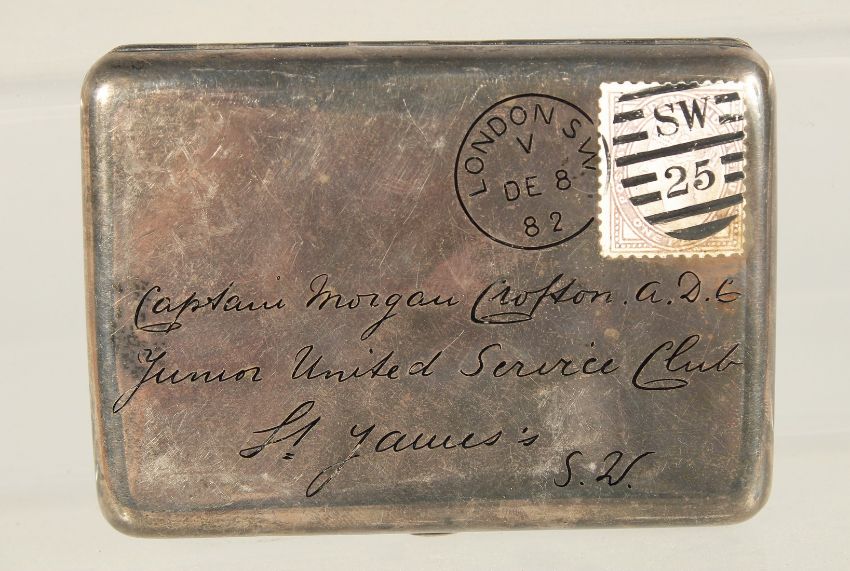 LONDON S.W.
V
DE 8
82
SW
25
Captain Morgan Crofton. A.D.C
Junior United Service Club
St James's
S.W.